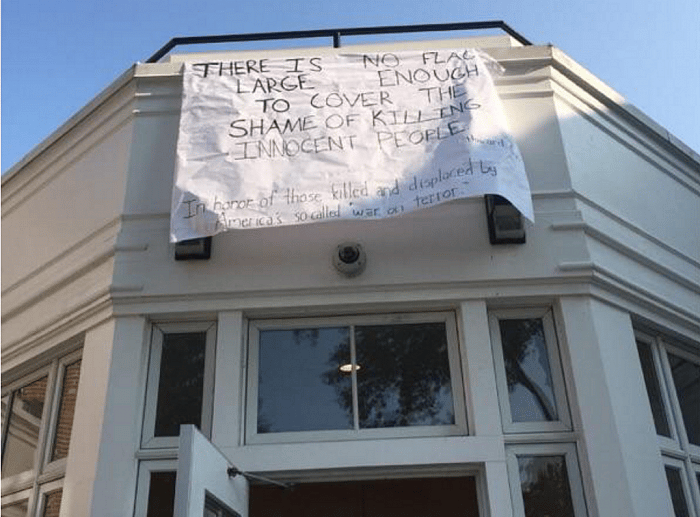 THERE IS NO FLAG
LARGE ENOUGH
TO COVER THE
SHAME OF KILLING
INNOCENT PEOPLE
In honor of those killed and displaced by
America's so called "war on terror."